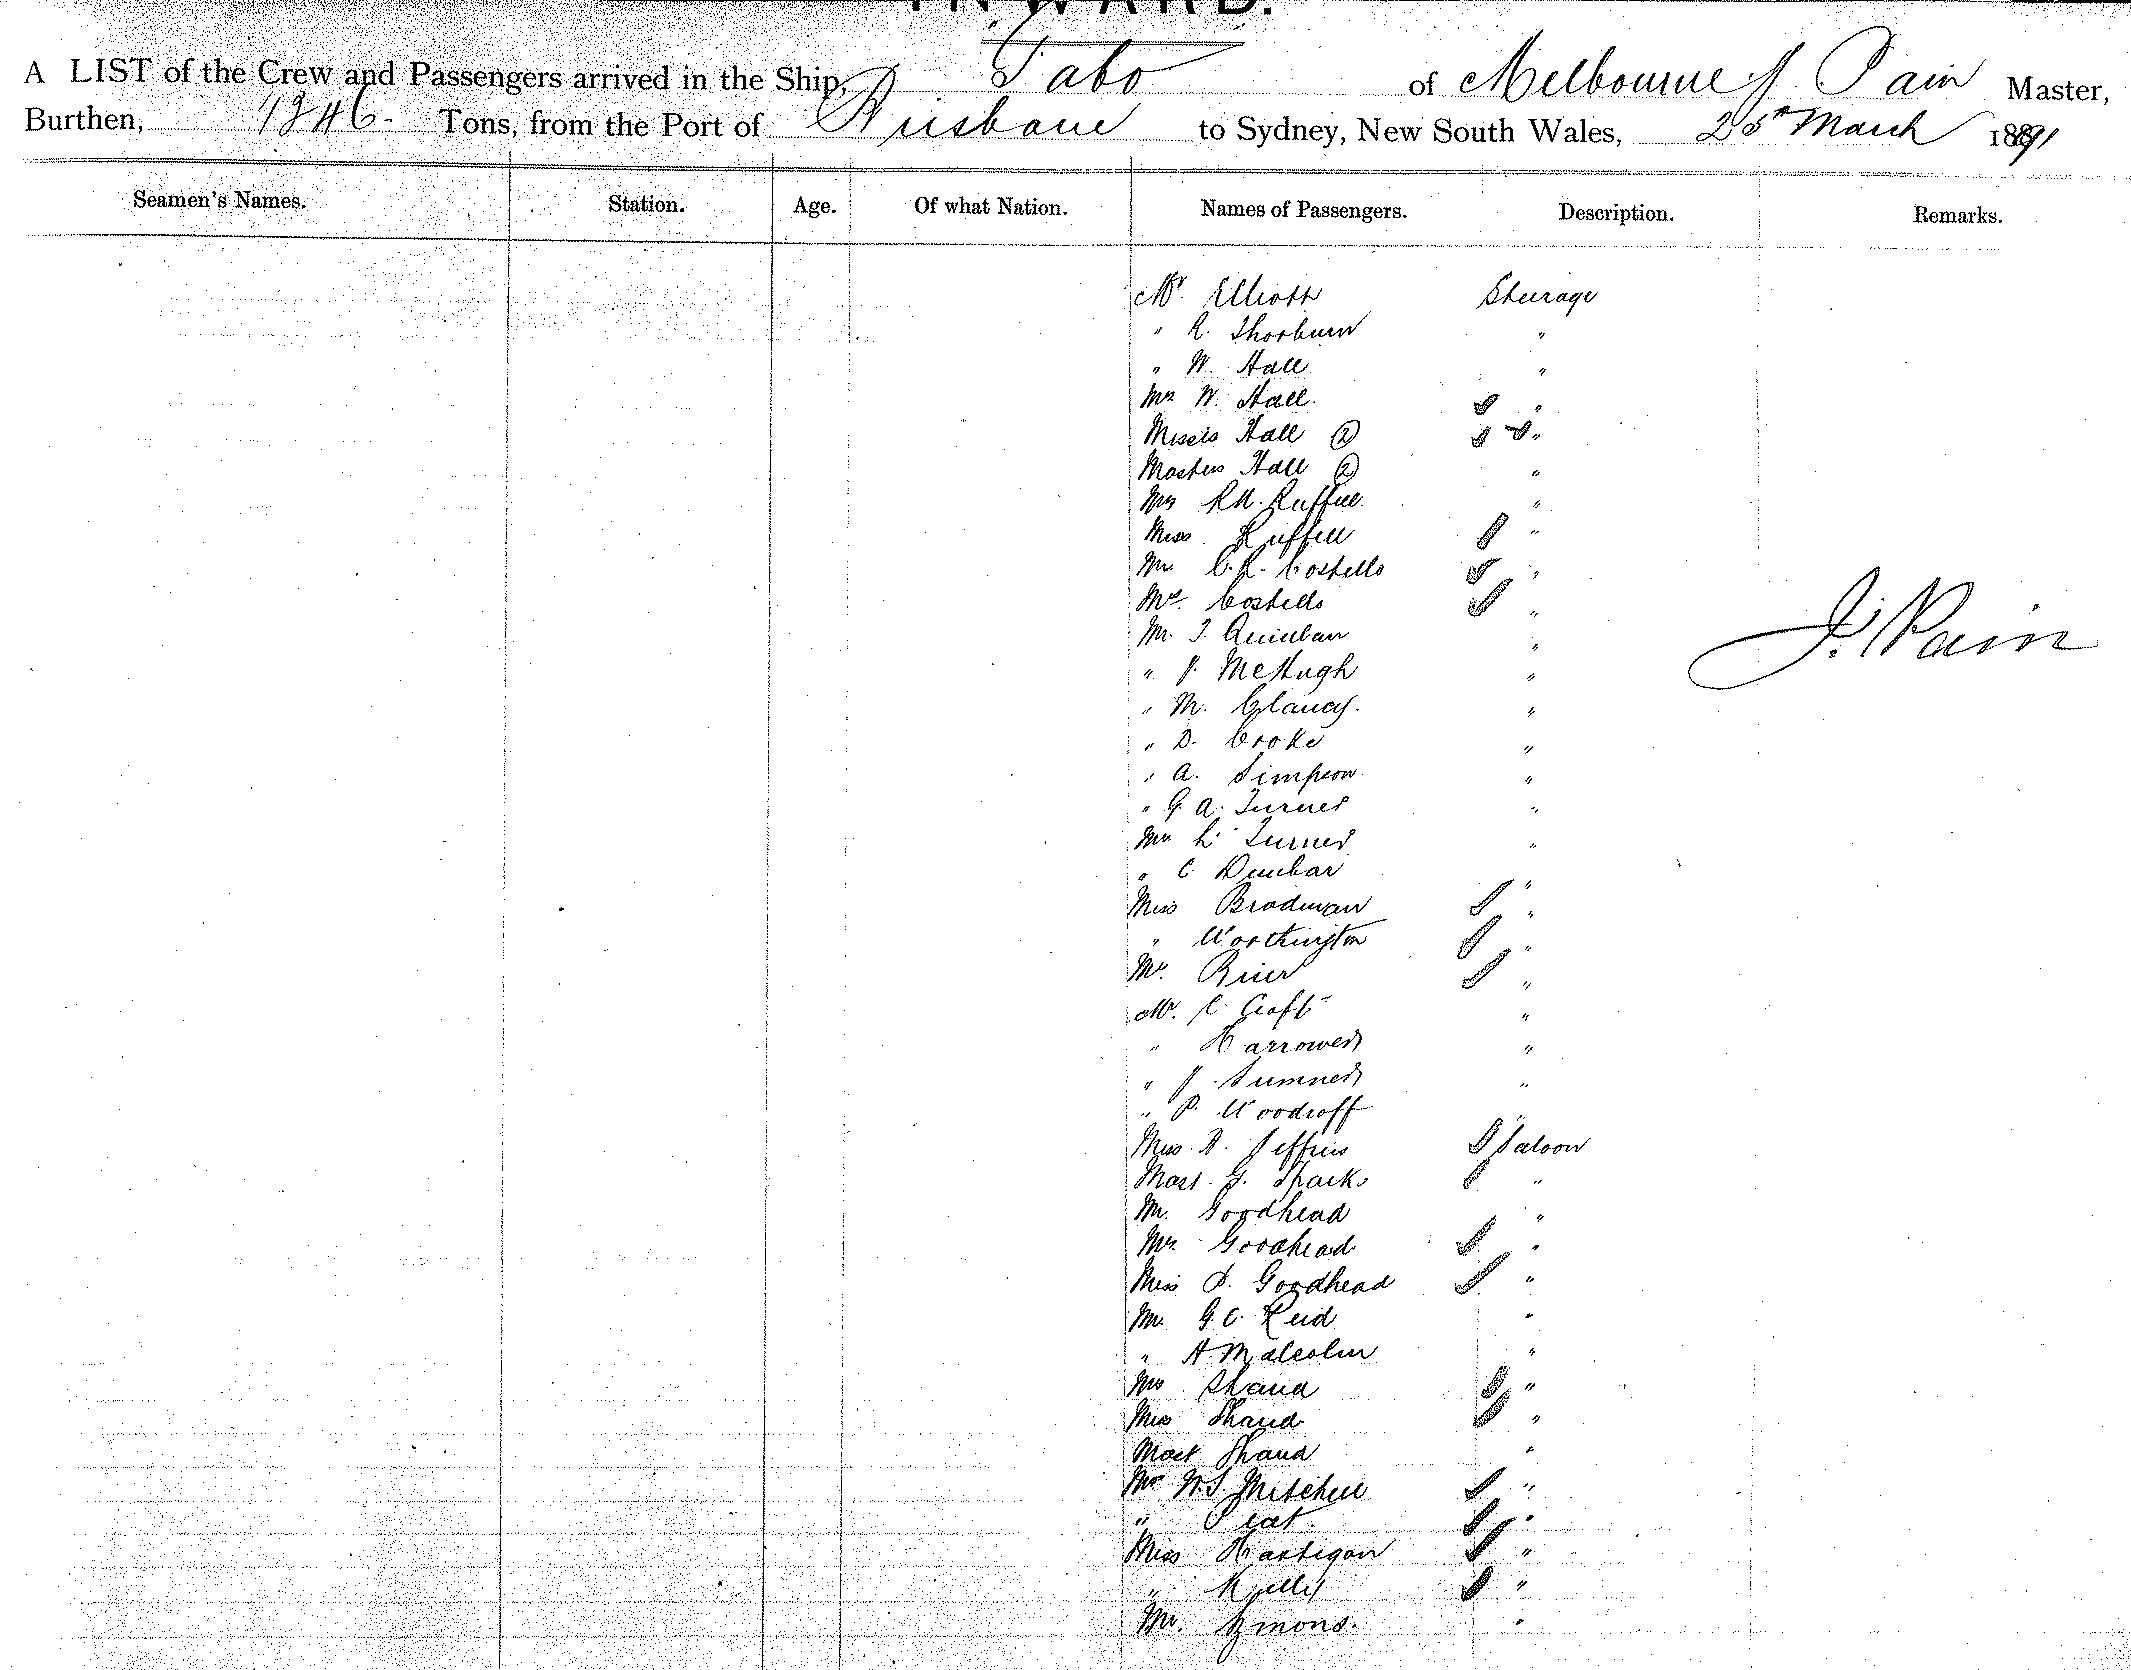 INWARD.
A LIST of the Crew and Passengers arrived in the Ship, Gabo of Melbourne J. Pain Master,
Burthen, 1346. Tons, from the Port of Brisbane to Sydney, New South Wales, 25th March 1891
Seamen's Names. Station. Age. Of what Nation. Names of Passengers. Description. Remarks.
Mr. Elliott Steerage
" R. Thorburn "
" W. Hall "
Mrs W. Hall. "
Misses Hall ② "
Masters Hall ② "
Mrs Ruffell "
Miss Ruffell "
C. R. Costello "
Costello "
Mr. T. Quinlan "
" J. McHugh "
" M. Clancy. "
" D. Cooke "
" A. Simpson "
" G. A. Turner "
L. Turner "
" C Dunbar "
Miss Bradman "
" Worthington "
Brier "
Mr. C Croft "
" Harrower "
" J. Sumner "
" P. Woodroff "
Miss Jeffries Saloon
Mast. G. Sparks "
Mr. Goodhead "
Mrs Goodhead "
Miss Goodhead "
Mr. G. C. Reid "
" A Malcolm "
Mrs Shand "
Miss Shand "
Mast Shand "
W. S. Mitchell "
" Peat "
Miss Hartigan "
" Kelly "
Mr. Symons. "
J. Pain